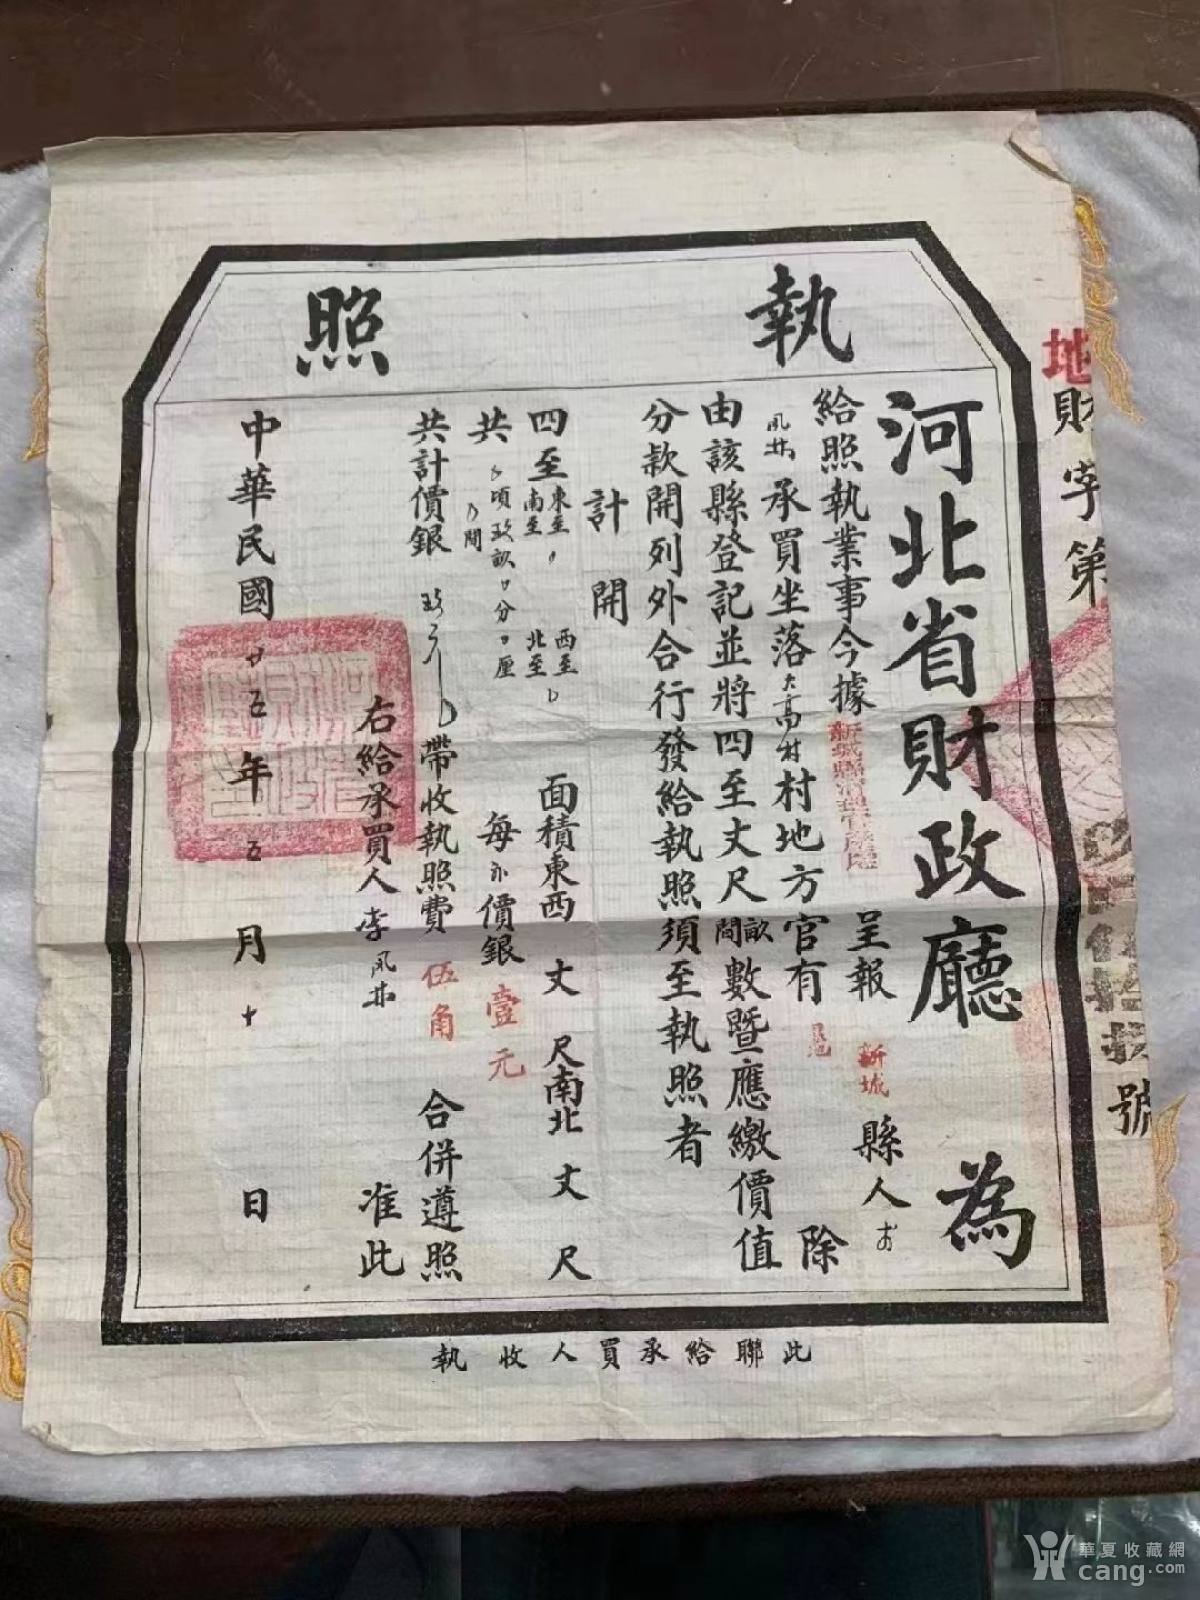 執照
地
財字第
號
河北省財政廳為
給照執業事今據
新城縣清理官產處
呈報
新城
縣人李
風林
承買坐落
大高村
村地方官有
地
除
由該縣登記並將四至丈尺畝間數暨應繳價值
分款開列外合行發給執照須至執照者
計開
四至
東至
南至
西至
北至
面積東西 丈 尺南北 丈 尺
共 頃玖畝 分 厘
間
每畝價銀
壹元
共計價銀
玖元
帶收執照費
伍角
合併遵照
右給承買人
李風林
准此
中華民國廿五年五月十日
此聯給承買人收執
華夏收藏網
cang.com